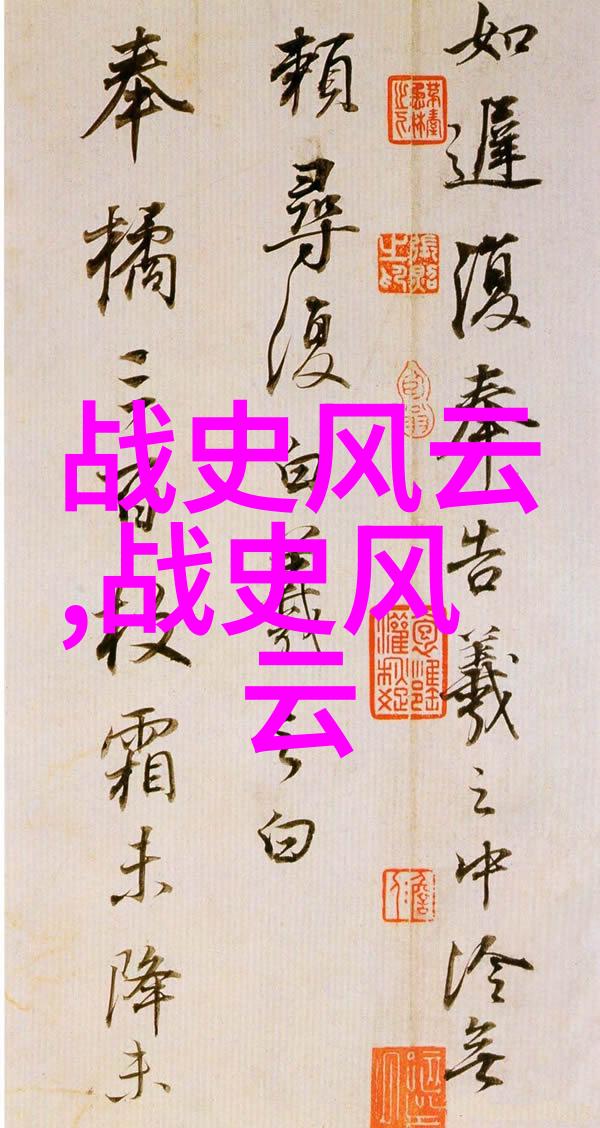 如遲復奉告羲之中冷無
賴尋復白羲之白
奉橘三百枚霜未降未
战史风云
,战史风
云